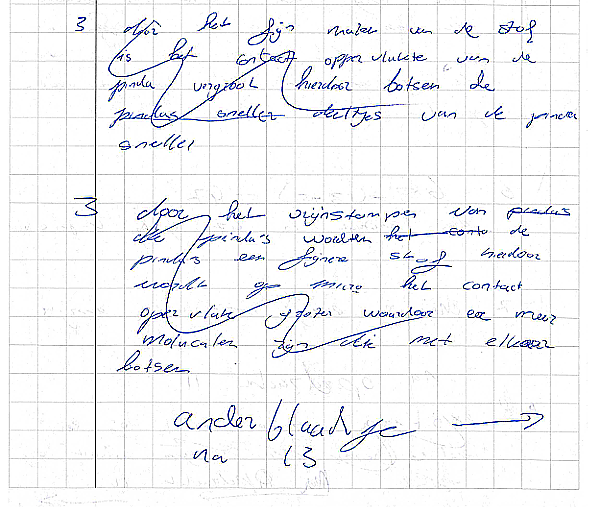 3 door het fijn malen van de stof
is het contact oppervlukte van de
pinda vergroot hierdoor botsen de
pindas sneller deeltjes van de pinda
sneller
3 door het vijnstampen van pindas
de pinda's worden het conta de
pindas een fijnere stof hierdoor
wordt op micro het contact
oppervlukte groter waardoor er meer
moluculen zijn die met elkaar
botsen
ander blaadje →
na 13